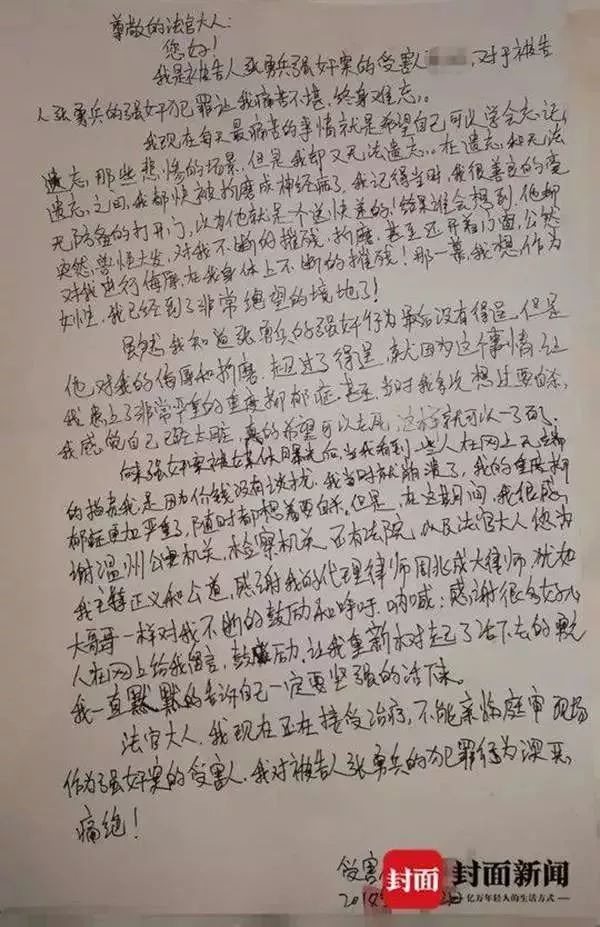 尊敬的法官大人:
您好!
我是被告人张勇兵强奸案的受害 ,对于被告
人张勇兵的强奸犯罪让我痛苦不堪,终身难忘。
我现在每天最痛苦的事情就是希望自己可以学会忘记,
遗忘,那些悲惨的场景,但是我却又无法遗忘。在遗忘,和无法
遗忘,之间,我都快被折磨成神经病了。我记得当时,我很善良的毫
无防备的打开门,以为他就是个送快递的!结果谁会想到,他却
突然,兽性大发,对我不断的摧残,折磨,甚至还开着门窗,公然
对我进行侮辱,在我身体上不断的摧残!那一幕,我想,作为
女性,我已经到了非常绝望的境地了!
虽然我知道张勇兵的强奸行为最后没有得逞,但是
他对我的侮辱和折磨,超过了得逞,就因为这个事情,让
我患上了非常严重的重度抑郁症,甚至,当时我多次想过要自杀,
我感觉自己已经太脏,真的希望可以去死,这样就可以一了百了。
强奸案被媒体曝光后,当我看到一些人在网上
的描责我是因为价钱没有谈拢,我当时就崩溃了,我的重度抑
郁症更加严重了,随时都想着要自杀。但是,在这期间,我很感
谢温州公安机关,检察机关,还有法院,以及法官大人您为
我主持正义和公道,感谢我的代理律师周兆成大律师,犹如
大哥哥一样对我不断的鼓励和呼吁,呐喊;感谢很多好心
人在网上给我留言,鼓励,让我重新树起了活下去的勇气
我一直默默的告诉自己一定要坚强的活下来。
法官大人,我现在正在接受治疗,不能亲临庭审现场
作为强奸案的受害人,我对被告人张勇兵的犯罪行为深恶
痛绝!
受害
封面 封面新闻
亿万年轻人的生活方式